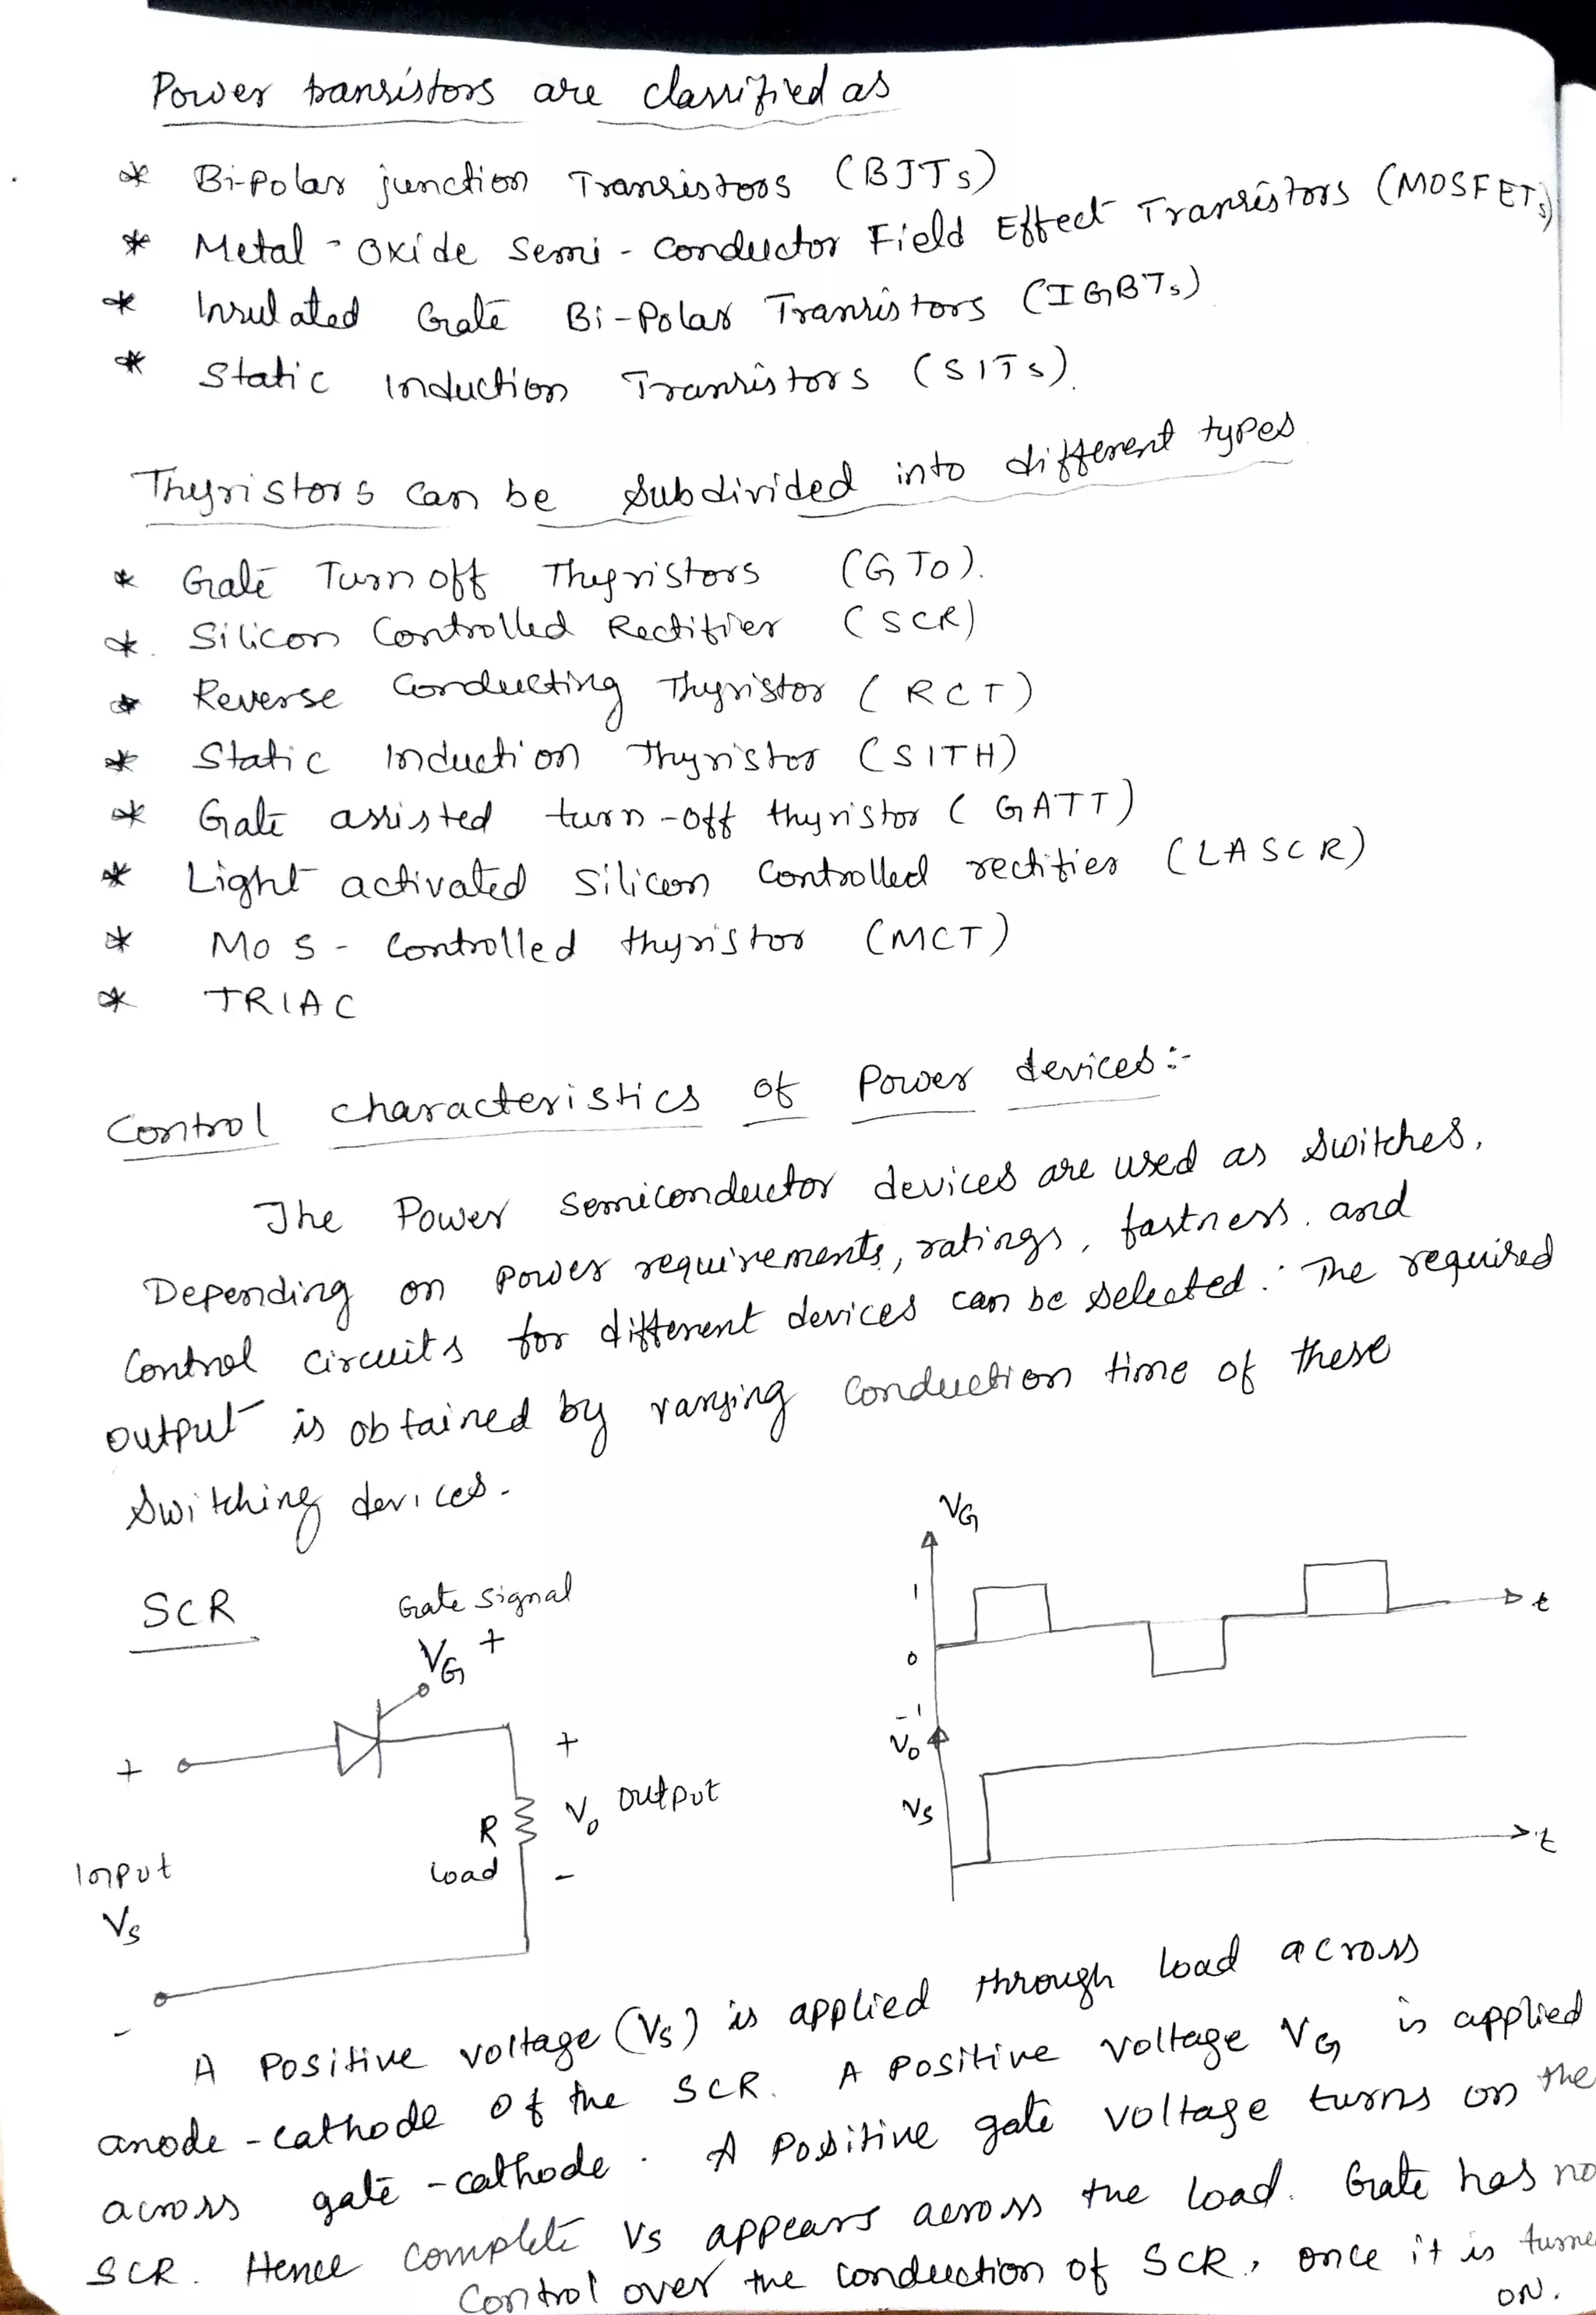 Power transistors are classified as
* Bi-Polar junction Transistors (BJTs)
* Metal-Oxide Semi-conductor Field Effect Transistors (MOSFETs)
* Insulated Gate Bi-Polar Transistors (IGBTs)
* Static Induction Transistors (SITs).
Thyristors can be subdivided into different types
* Gate Turn off Thyristors (GTO).
* Silicon Controlled Rectifier (SCR)
* Reverse Conducting Thyristor (RCT)
* Static Induction Thyristor (SITH)
* Gate assisted turn-off thyristor (GATT)
* Light activated silicon controlled rectifier (LASCR)
* MOS-Controlled thyristor (MCT)
* TRIAC
Control characteristics of Power devices:-
The Power semiconductor devices are used as switches.
Depending on power requirements, ratings, fastness, and
Control circuits for different devices can be selected. The required
output is obtained by varying conduction time of these
switching devices.
SCR
Gate signal
VG +
+
+
R
Load
Vo output
-
Input
Vs
-
VG
1
0
-1
t
Vo
Vs
t
A Positive voltage (Vs) is applied through load across
anode-cathode of the SCR. A positive voltage VG is applied
across gate-cathode. A Positive gate voltage turns on the
SCR. Hence complete Vs appears across the load. Gate has no
control over the conduction of SCR, once it is turne
ON.